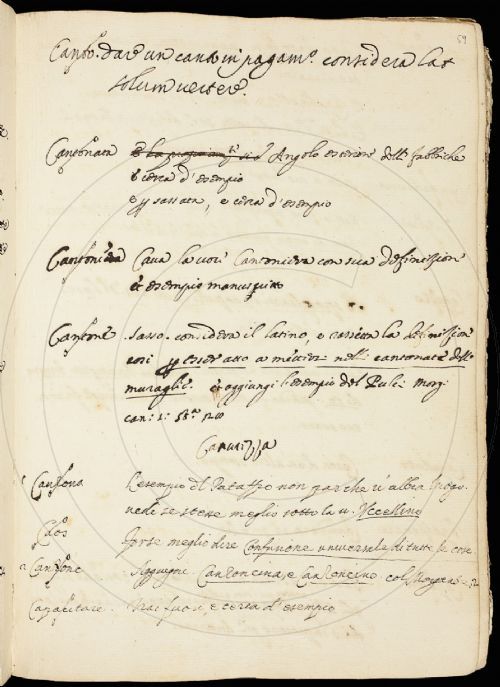 69
Canto. dare un canto in pagam.º considera lat
solum vertere.
Cantonata Angolo esteriore delle fabbriche
e cerca d'esempio
e sassata, e cerca d'esempio
Cantoniera Cava la voce Cantoniera con sua definizione
et esempio manuscritto
Cantone sasso. considera il latino, e rassetta la definizione
così esser atto a mettersi nelle cantonate delle
muraglie. et aggiungi l'esempio del Pulci Morg.
can: 1: st.ª
Canzona L'esempio del Pataffio non par che v'abbia luogo.
vedi se stesse meglio sotto la v. Uccellino
Caos forse meglio dire Confusione universale di tutte le cose
2 Canzone Aggiugni Canzoncina, e Canzoncino col
Capacitare. Trai fuori, e cerca d'esempio